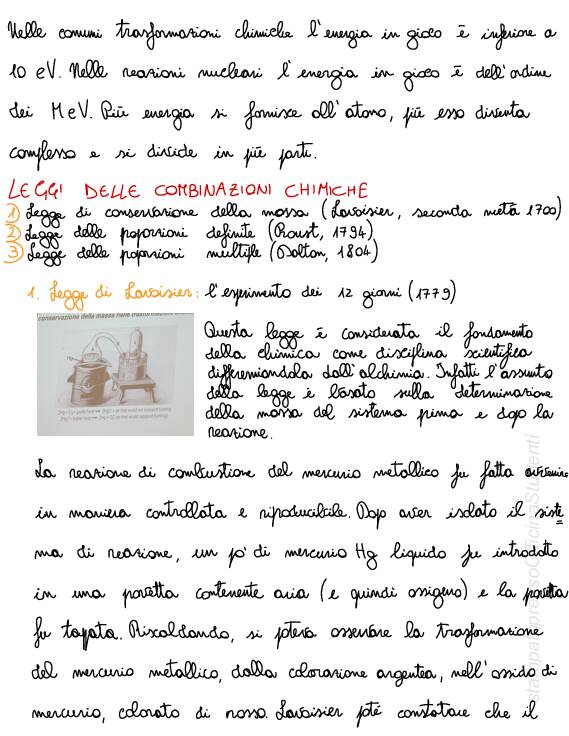 Nelle comuni trasformazioni chimiche l'energia in gioco è inferiore a
10 eV. Nelle reazioni nucleari l'energia in gioco è dell'ordine
dei MeV. Più energia si fornisce all'atomo, più esso diventa
complesso e si divide in più parti.
LEGGI DELLE COMBINAZIONI CHIMICHE
1) Legge di conservazione della massa (Lavoisier, seconda metà 1700)
2) Legge delle proporzioni definite (Proust, 1794)
3) Legge delle proporzioni multiple (Dalton, 1804)
1. Legge di Lavoisier: l'esperimento dei 12 giorni (1779)
conservazione della massa nelle trasformazioni
Questa legge è considerata il fondamento
della chimica come disciplina scientifica
differenziandola dall'alchimia. Infatti l'assunto
della legge è basato sulla determinazione
della massa del sistema prima e dopo la
reazione.
La reazione di combustione del mercurio metallico fu fatta avvenire
in maniera controllata e riproducibile. Dopo aver isolato il siste
ma di reazione, un po' di mercurio Hg liquido fu introdotto
in una provetta contenente aria (e quindi ossigeno) e la provetta
fu tappata. Riscaldando, si poteva osservare la trasformazione
del mercurio metallico, dalla colorazione argentea, nell'ossido di
mercurio, colorato di rosso. Lavoisier poté constatare che il
stampatopressoOfficineStudenti